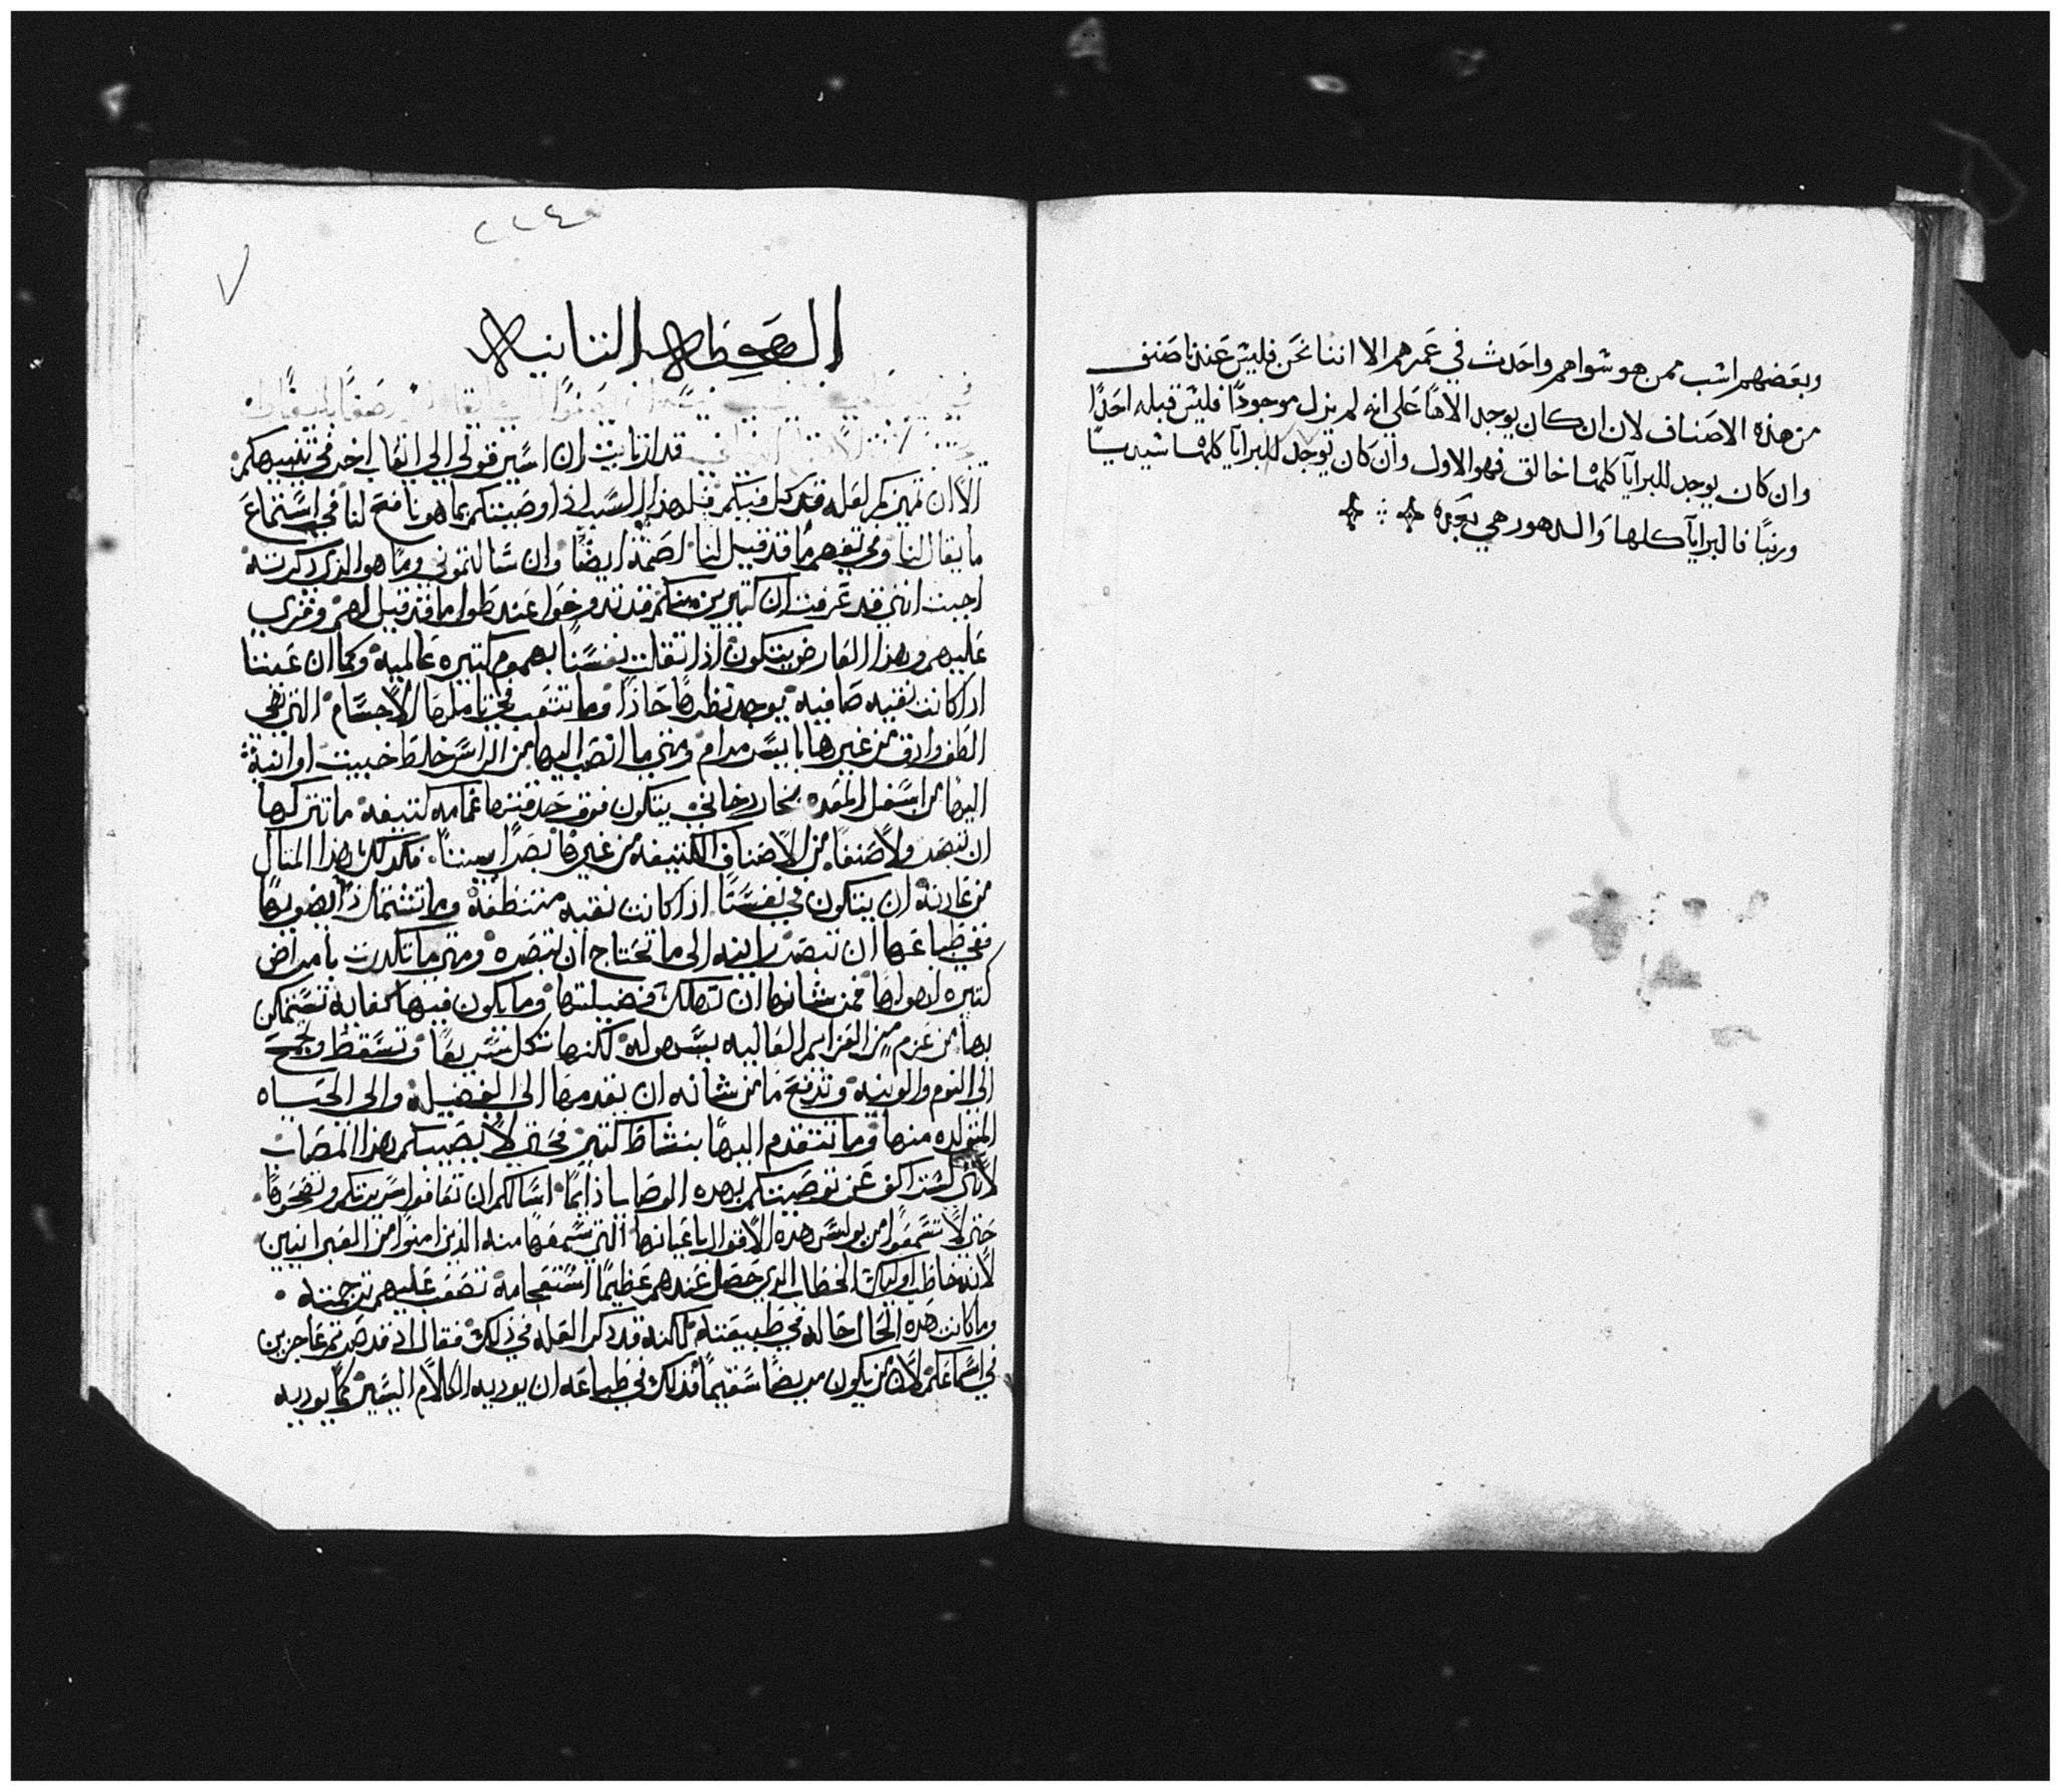 وبعضهم اشب ممن هو شواهم واحدث في عمرهم الا اننا نحن فليش عندنا صنف
من هذه الاصناف لان ان كان يوجد الاهًا على انه لم يزل موجودًا فليش قبله احدًا
وان كان يوجد للبرايآ كلها خالق فهو الاول وان كان يوجد للبرايآ كلها شيديسًا
وربًا فالبرايآ كلها والدهور هي بعده
٢٢٤
٧
العظه الثانيه
قد ارتايت ان اسير قولي الى القاب اخر في تنبيهكم
الا ان تميزكم لعله قد كل فيتكم قبل هذا السبب اذ اوصيتكم بما هو نافع لنا في استماع
ما يقال لنا وفي تفهم ما قد قيل لنا لصمته ايضًا وان سالتموني وما هو الذي ذكرته
اجبت انني قد عرفت ان كثيرين منكم قد تدوخوا عند طول ما قد قيل لهم وقري
عليهم وهذا العارض يتكون اذا ثقلت نفسنا بهموم كثيره عالميه وكما ان عيننا
اذا كانت نقيه صافيه يوجد نظرها حاذًا وما تتعب في تاملها الاجسام التي هي
الطف وادق من غيرها بايسر مرام ومتى ما انصب اليها من الراس خلط خبيث او انبثه
اليها من اسفل المعده بخار دخاني يتكون فوق حدقتها غمامه كثيفه ما تتركها
ان تبصر ولا صنفًا من الاصناف الكثيفه من غيرها بصرًا بيننًا فكذلك هذا المثال
من عادته ان يتكون في نفسنا اذا كانت نقيه متنظفه وما تشتمل ذا بصويها
ففي طباعها ان تبصر رابيه الى ما تحتاج ان تبصره ومتى ما تكدرت بامراض
كثيره لهواها فمن شانها ان تهلك فضيلتها وما يكون فيها كفايه تستمكن
بها من عزم من العزايم العاليه بسهوله لكنها تكل سريعًا وتسقط وتجمح
الى النوم والونيه وتدفع ما من شانه ان يقدمها الى الفضيله والى الحياه
المتولده منها وما تتقدم اليها بنشاط كثير فحتى لا يصيبكم هذا المصاب
لانني لست اكف عن توصيتكم بهذه الوصايا دايمًا اسالكم ان تعافوا سريرتكم وتصححوها
حتى لا تسمعوا من بولس هذه الاقوال باعيانها التي سمعها منه الذين امنوا من العبرانيين
لانه خاطب اوليك الخطاب الذي حصل عندهم عظيمًا استعجامه تصعب عليهم ترجمته
وما كانت هذه الحال حاله في طبيعته لكنه قد ذكر العله في ذلك فقال اذ قد صرتم عاجزين
في اسماعكم لان من يكون مريضًا سقيمًا فذلك في طباعه ان يوديه الكلام اليسير كما يوديه